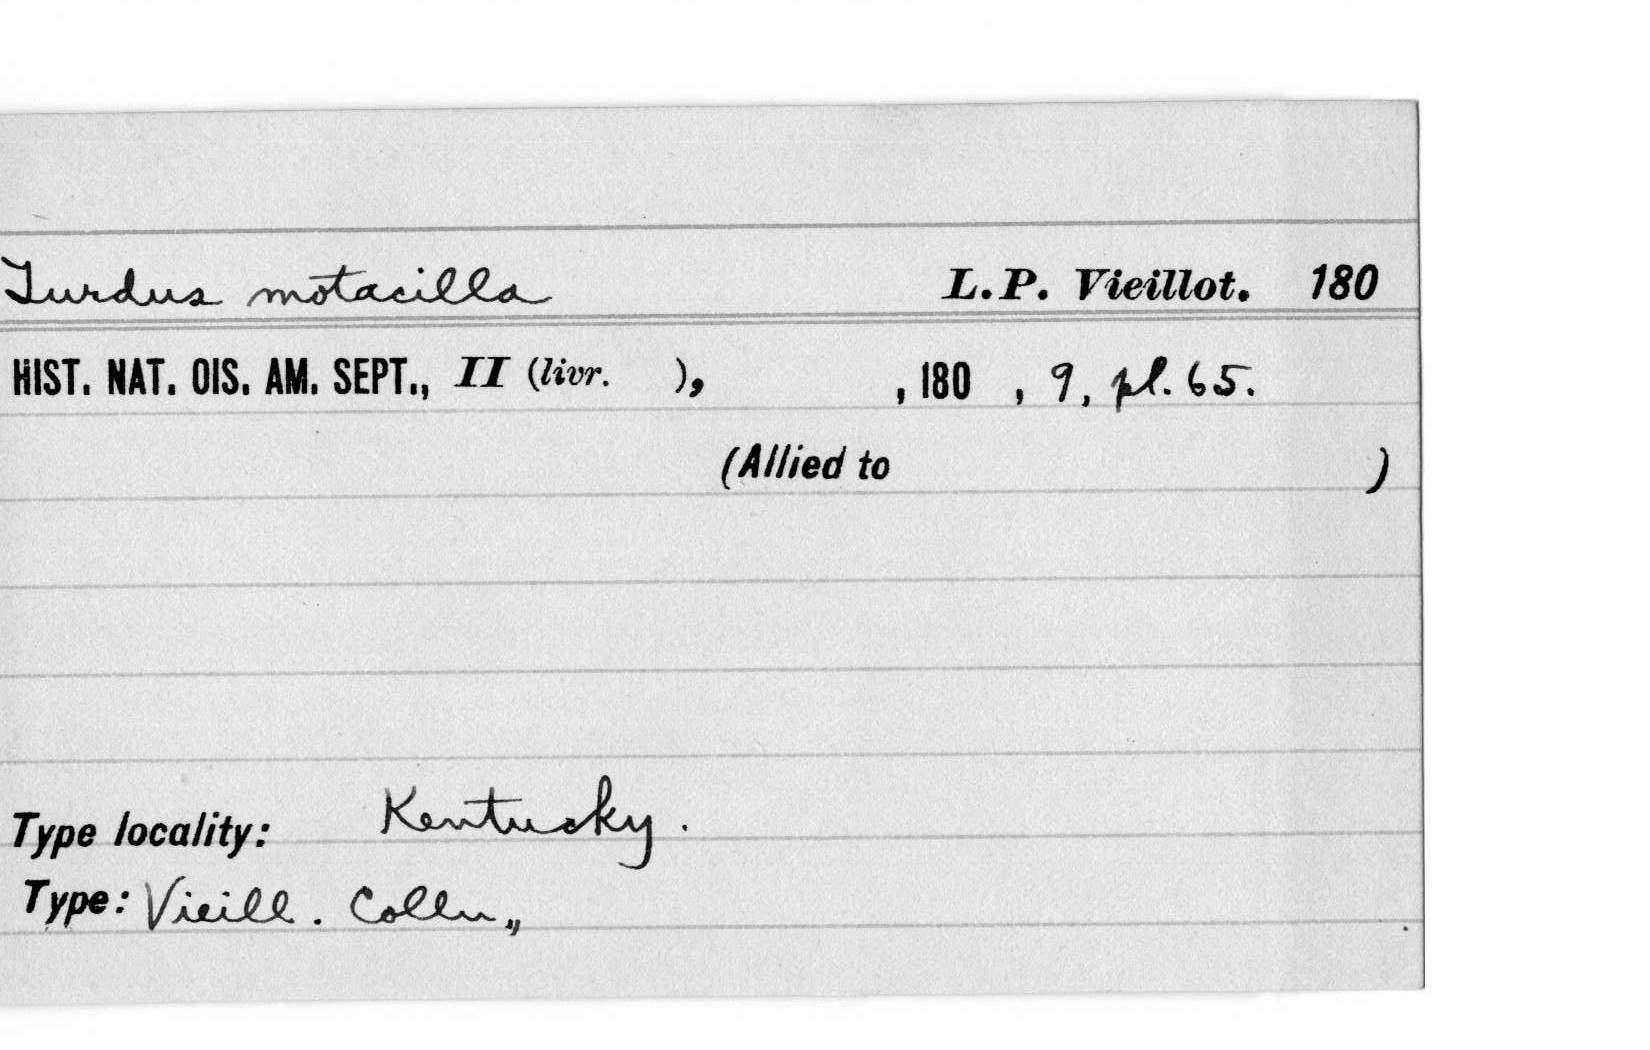 Turdus motacilla L.P. Vieillot. 180
HIST. NAT. OIS. AM. SEPT., II (livr. ), , 180 , 9, pl. 65.
(Allied to )
Type locality: Kentucky.
Type: Vieill. Colln.,